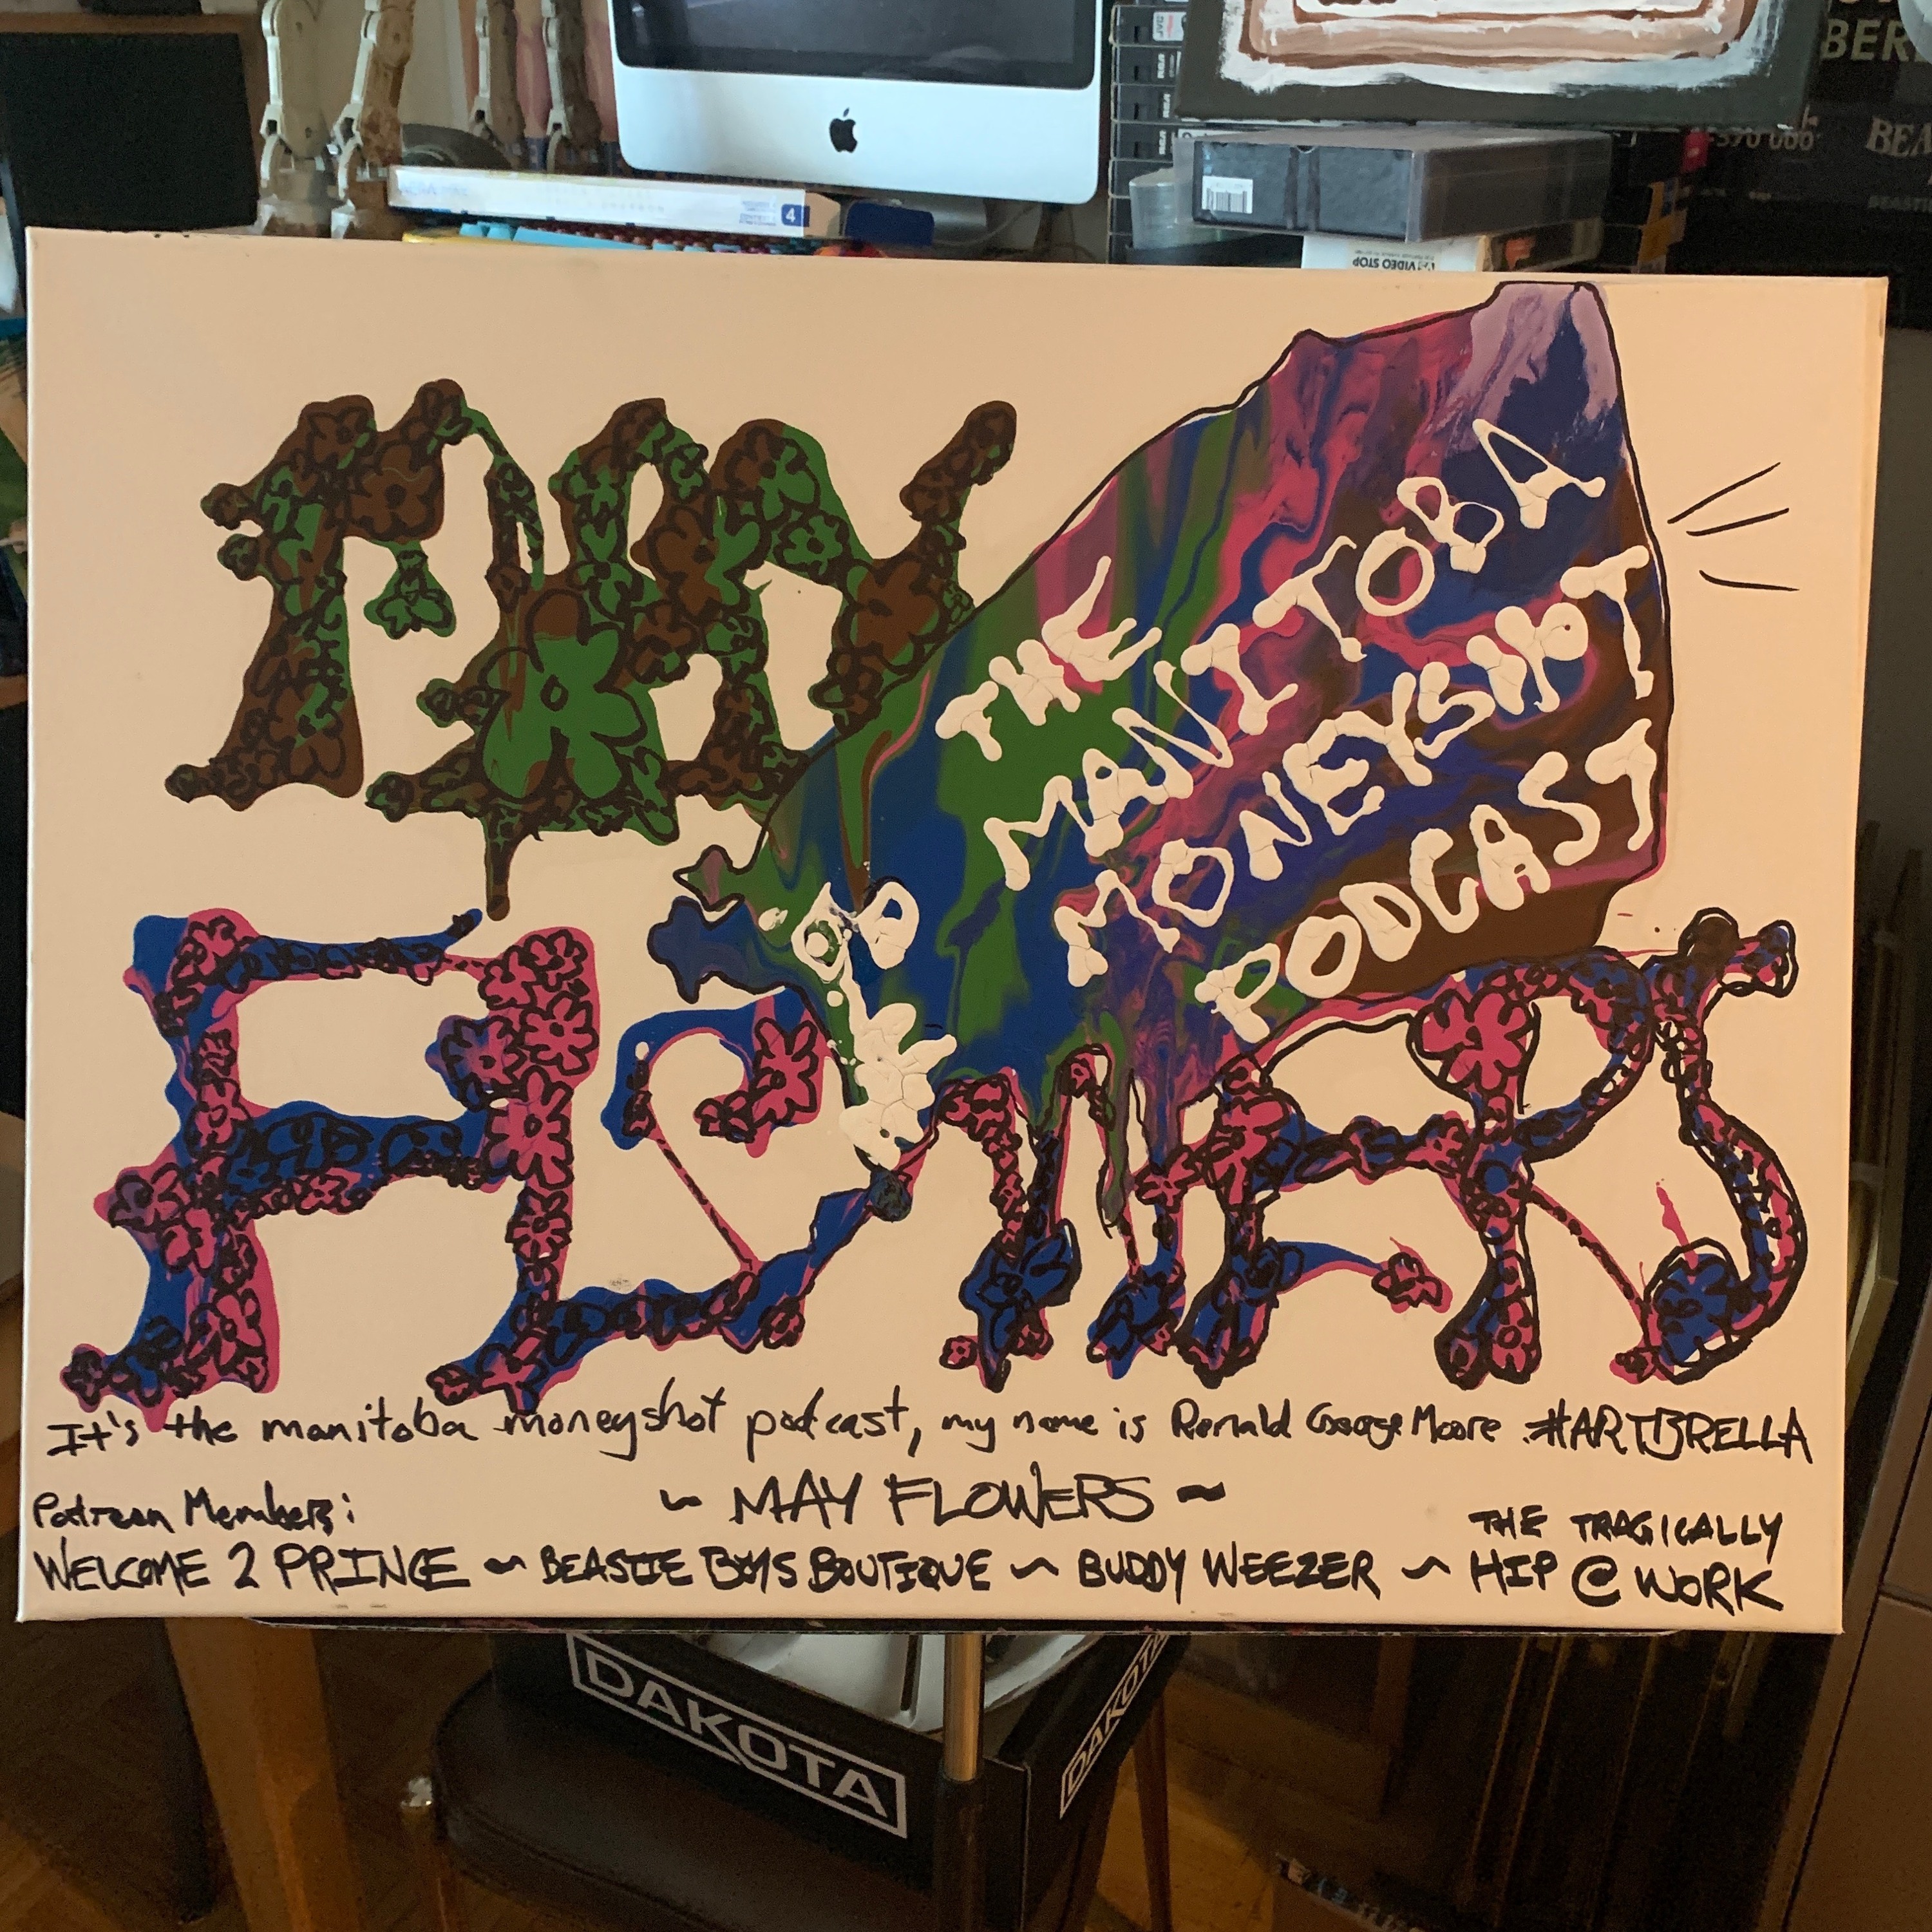 4
VIDEO STOP
BER
BEA
MAY
THE
MANITOBA
MONEYSHOT
PODCAST
FLOWERS
It's the manitoba moneyshot podcast, my name is Ronald George Moore #ARTBRELLA
~ MAY FLOWERS ~
Patreon Members:
WELCOME 2 PRINCE ~ BEASTIE BOYS BOUTIQUE ~ BUDDY WEEZER ~ THE TRAGICALLY
HIP @ WORK
DAKOTA
DAKOTA